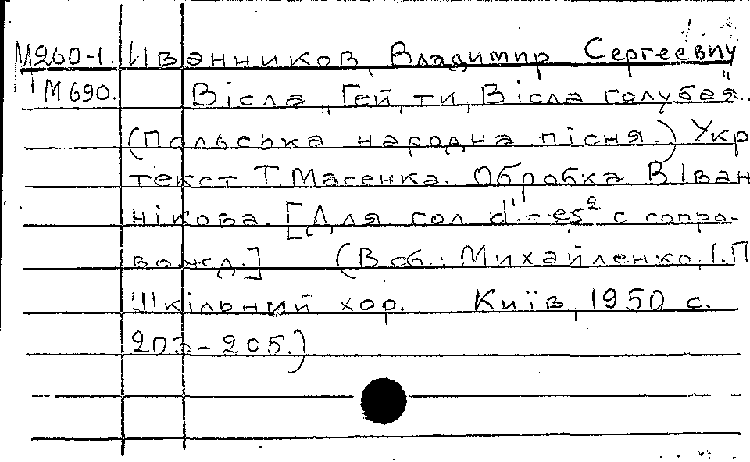 М260-1. Иванников, Владимир Сергеевич
М690. Вісла, Гей, ти, Вісла голубая.
(Польська народна пісня.) Укр
текст Т Масенка. Обробка В Іван
нікова. [Для гол d¹-es² с сопро-
вожд.] (В сб.: Михайленко, І.П
Шкільний хор. Київ, 1950 с.
203-205.)